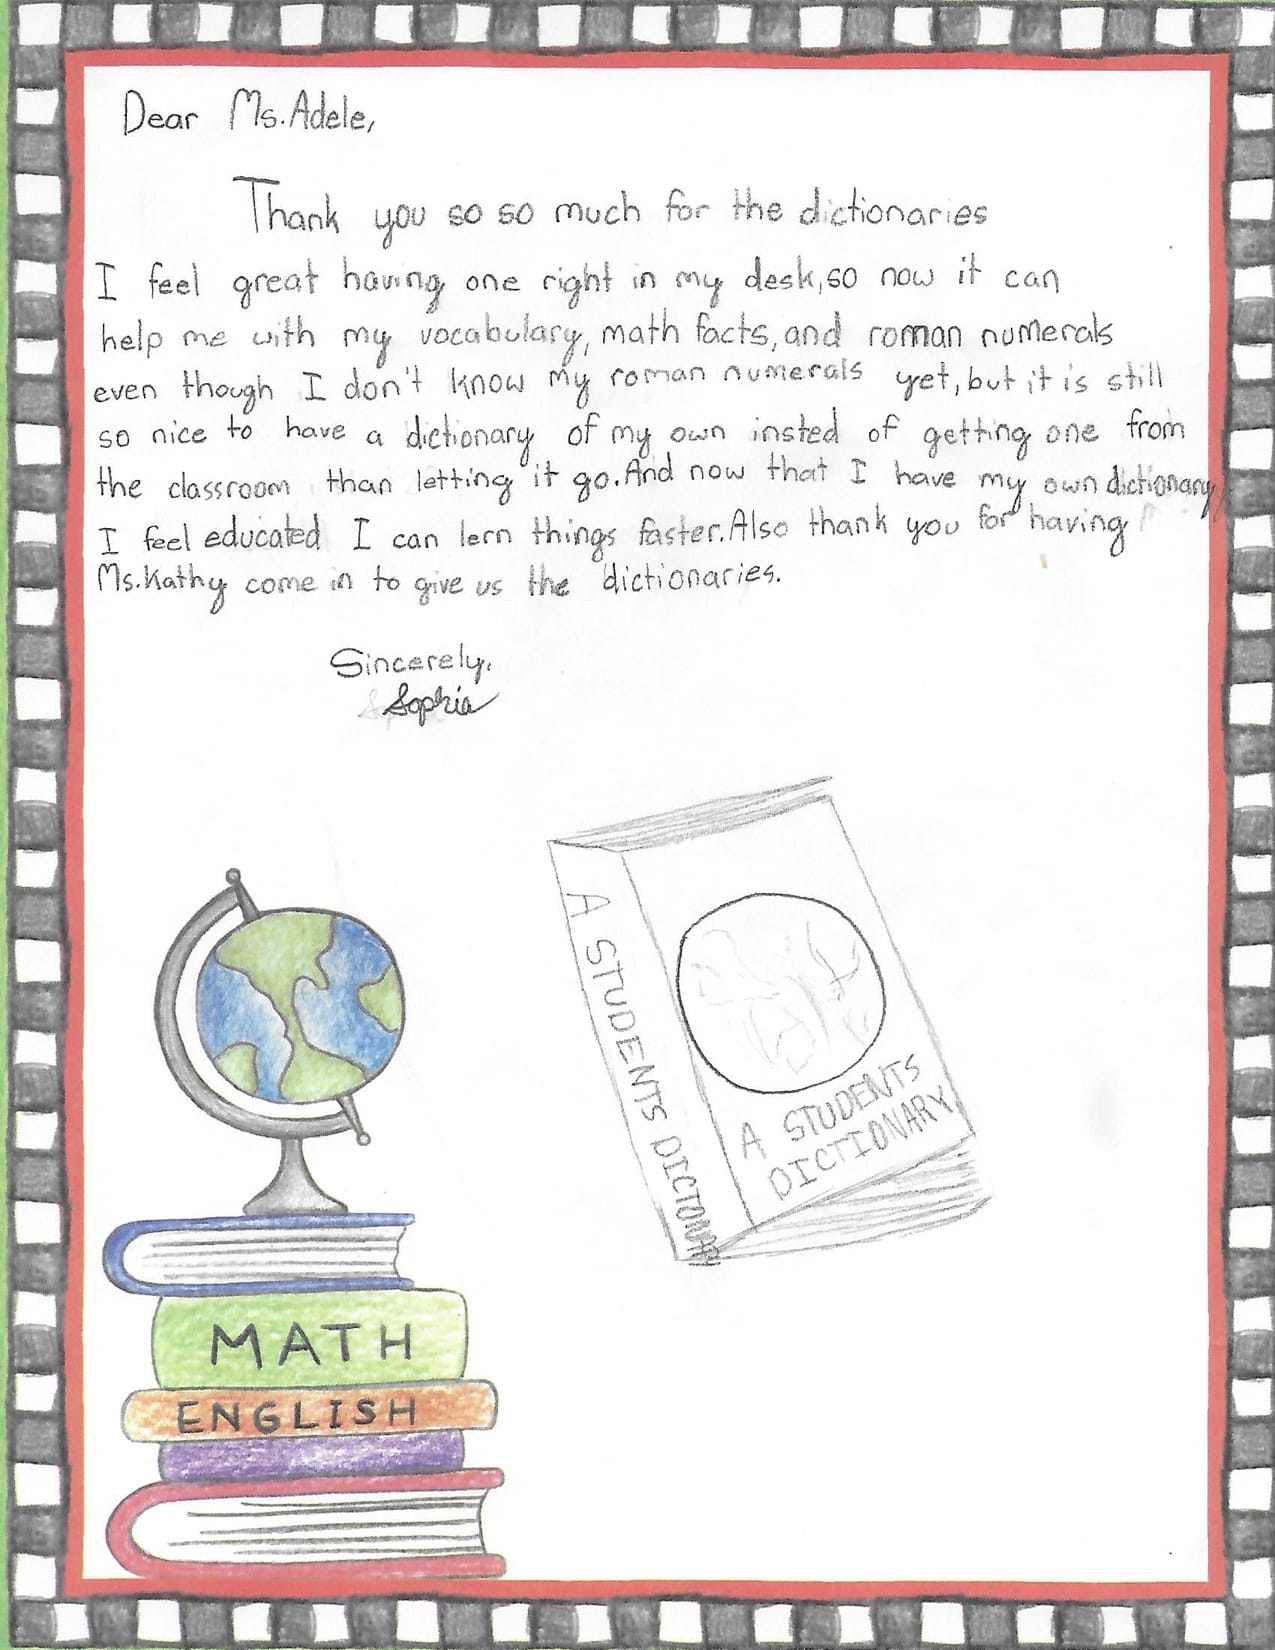 Dear Ms. Adele,
Thank you so so much for the dictionaries
I feel great having one right in my desk, so now it can
help me with my vocabulary, math facts, and roman numerals
even though I don't know my roman numerals yet, but it is still
so nice to have a dictionary of my own insted of getting one from
the classroom than letting it go. And now that I have my own dictionary,
I feel educated I can lern things faster. Also thank you for having
Ms. Kathy come in to give us the dictionaries.
Sincerely,
Sophia
A STUDENTS DICTONARY
A STUDENTS
DICTIONARY
MATH
ENGLISH